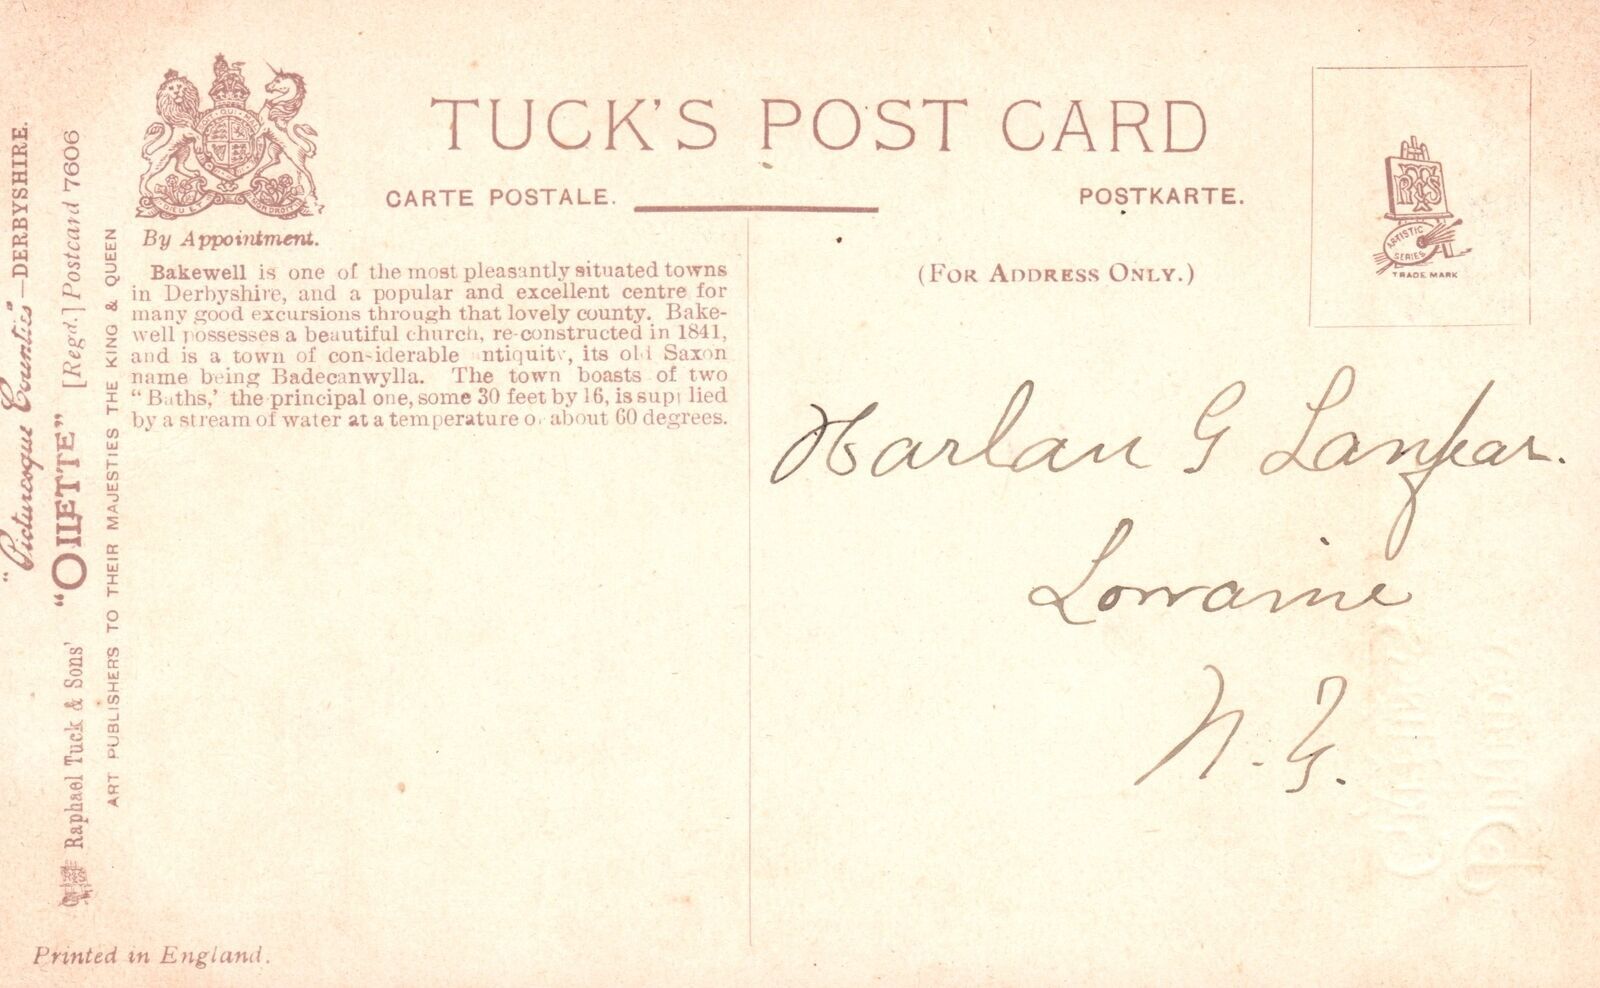 TUCK'S POST CARD
CARTE POSTALE.
POSTKARTE.
By Appointment.
(FOR ADDRESS ONLY.)
ARTISTIC
SERIES
TRADE MARK
Bakewell is one of the most pleasantly situated towns
in Derbyshire, and a popular and excellent centre for
many good excursions through that lovely county. Bake-
well possesses a beautiful church, re-constructed in 1841,
and is a town of con-iderable ntiquity, its old Saxon
name being Badecanwylla. The town boasts of two
"Baths,' the principal one, some 30 feet by 16, is supplied
by a stream of water at a temperature o. about 60 degrees.
Harlan G
Lorraine
N.Y.
"Picturesque Counties"—DERBYSHIRE.
Raphael Tuck & Sons' "OILETTE" [Regd.] Postcard 7606
ART PUBLISHERS TO THEIR MAJESTIES THE KING & QUEEN
Printed in England.